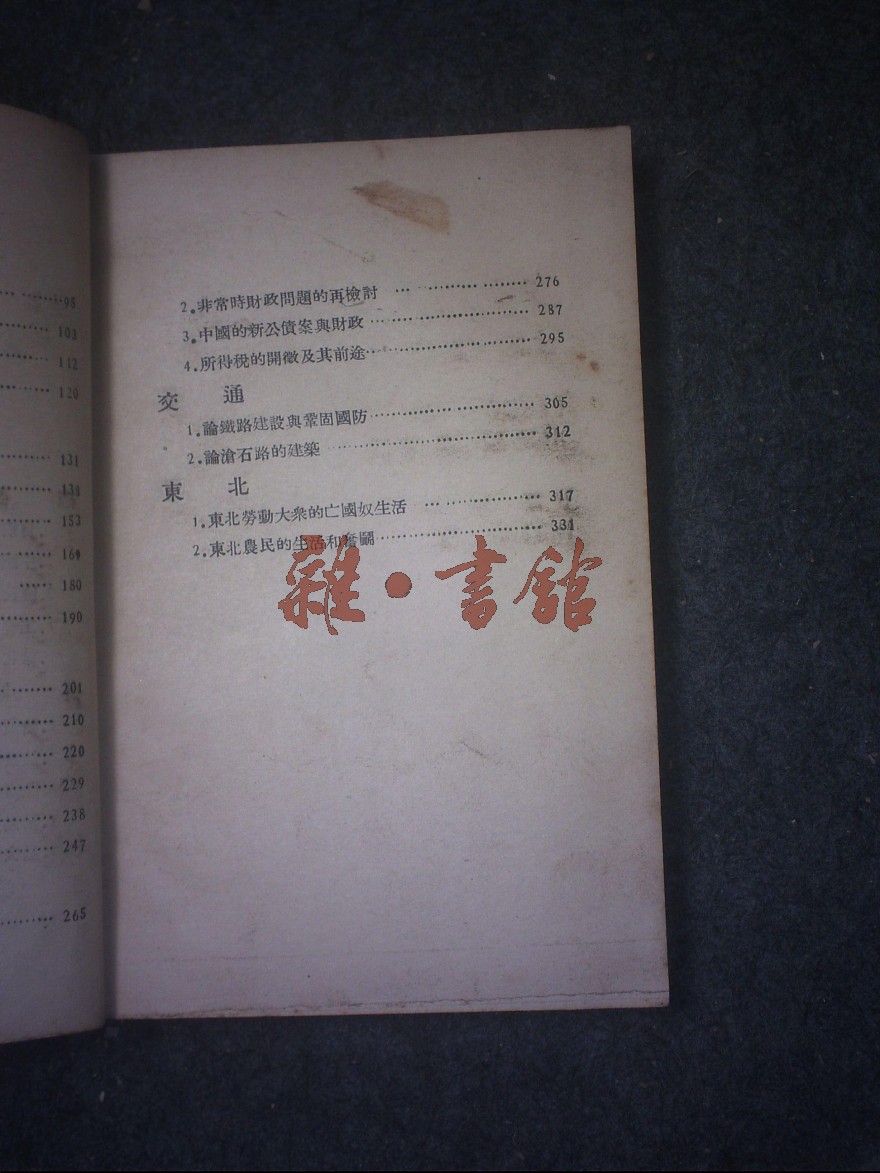 98
103
112
120
131
138
153
169
180
190
201
210
220
229
238
247
265
2.非常時財政問題的再檢討 ………………… 276
3.中國的新公債案與財政 ………………… 287
4.所得稅的開徵及其前途 ………………… 295
交 通
1.論鐵路建設與鞏固國防 ………………… 305
2.論滄石路的建築 ………………… 312
東 北
1.東北勞動大衆的亡國奴生活 ………………… 317
2.東北農民的生活和奮鬭 ………………… 331
雜·書館